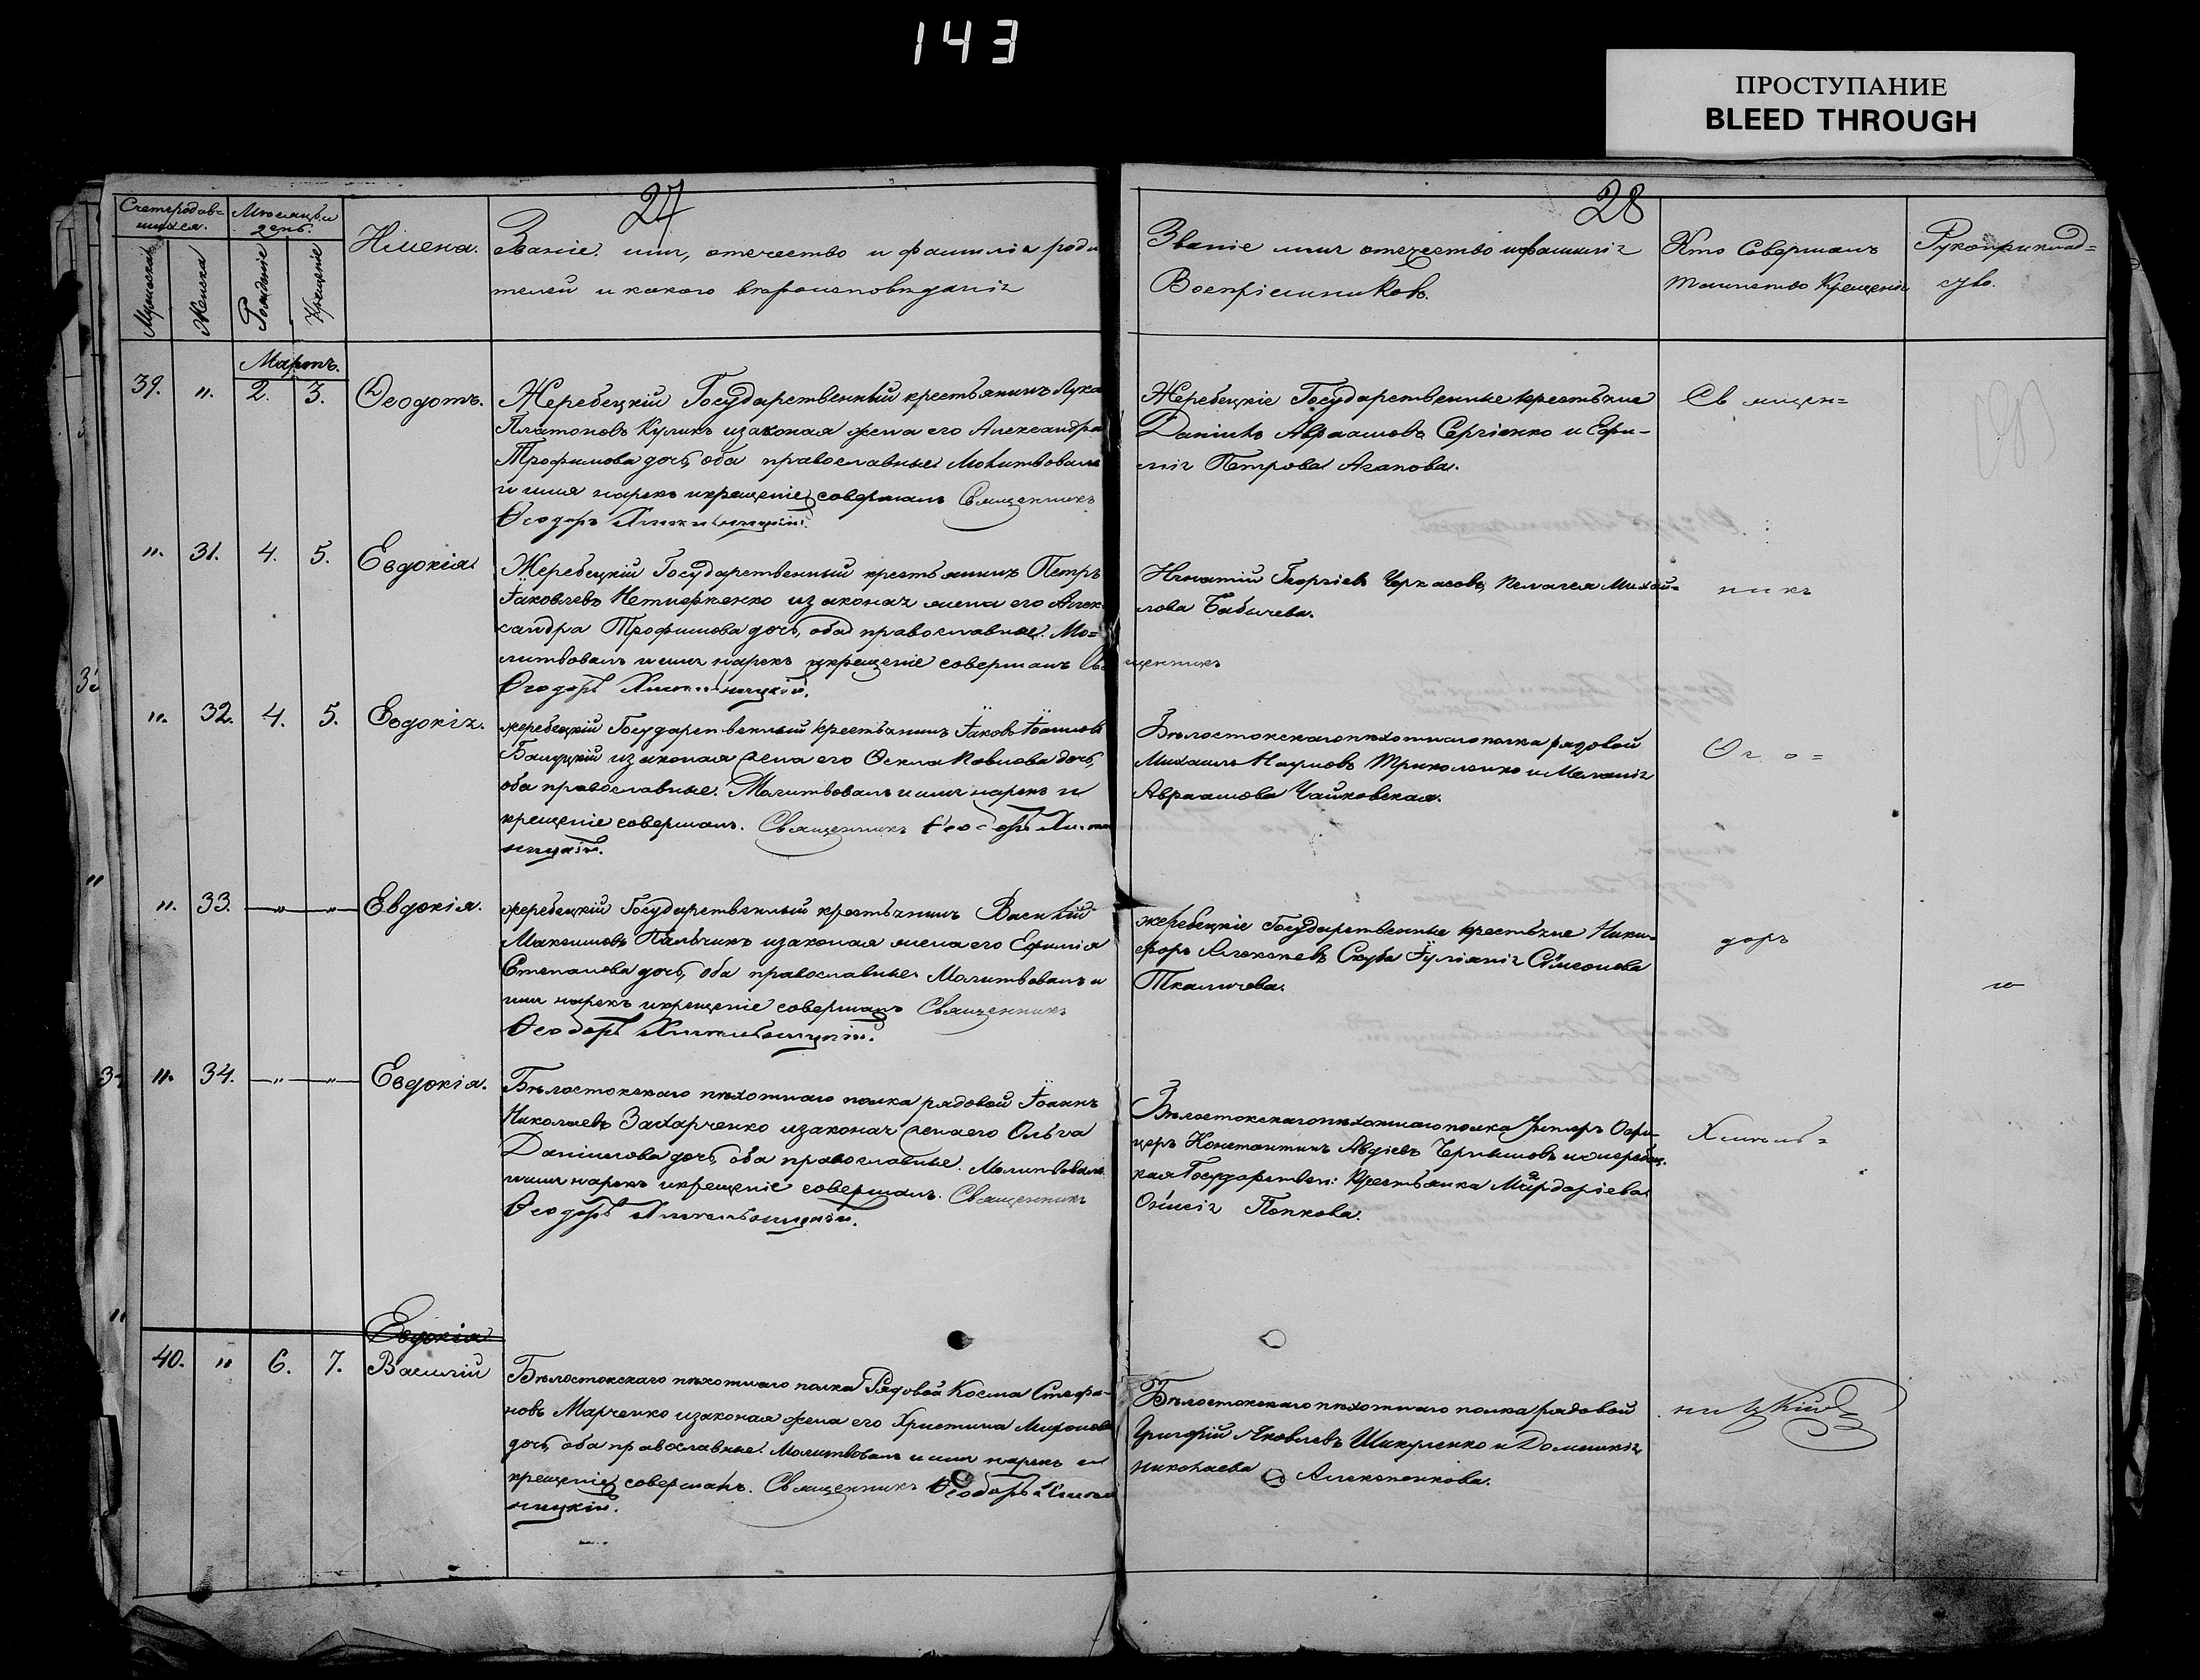 143
ПРОСТУПАНИЕ
BLEED THROUGH
27
28
Счетъ родив=
шихся.
Мѣсяцъ и
день.
Мужеска
Женска
Рожденіе
Крещеніе
Имена.
Званіе, имя, отечество и фамилія роди
телей и какого вѣроисповѣданія
Званіе имя отечество и фамилія
Воспріемниковъ.
Кто Совершалъ
таинство Крещенія
Рукоприклад=
ство.
Мартъ.
39. " 2. 3. Ѳеодотъ.
Жеребецкій Государственный крестьянинъ Лука
Платоновъ Куликъ и законая жена его Александра
Трофимова дочь, оба православные. Молитвовалъ
и имя нарекъ и крещеніе совершалъ Священникъ
Ѳеодоръ Хмѣльницкій.
Жеребецкіе Государственные крестьяне
Даніилъ Авраамовъ Сергіенко и Ефи-
мія Петрова Агапова.
Священ=
" 31. 4. 5. Евдокія
Жеребецкій Государственный крестьянинъ Петръ
Іаковлевъ Нетиеженко и законая жена его Алек
сандра Трофимова дочь, оба православные. Мо=
литвовалъ и имя нарекъ и крещеніе совершалъ Священникъ
Ѳеодоръ Хмѣльницкій.
Игнатій Георгіевъ Черкасовъ, Пелагея Михай=
лова Бабичева.
никъ
" 32. 4. 5. Евдокія.
жеребецкій Государственный крестьянинъ Іаковъ Іоанновъ
Балуцкій и законая жена его Ѳекла Павлова дочь,
оба православные. Молитвовалъ и имя нарекъ и
крещеніе совершалъ. Священникъ Ѳеодоръ Хмѣль
ницкій.
Бѣлостокскаго пѣхотнаго полка рядовой
Михаилъ Наумовъ Триколенко и Меланія
Авраамова Чайковская.
Ѳео=
" 33. " " Евдокія.
жеребецкій Государственный крестьянинъ Василій
Максимовъ Пальчикъ и законая жена его Ефимія
Степанова дочь, оба православные. Молитвовалъ и
имя нарекъ и крещеніе совершалъ Священникъ
Ѳеодоръ Хмѣльницкій.
жеребецкіе Государственные крестьяне Ники=
форъ Алексѣевъ Скуба Іуліанія Симеонова
Ткаличева.
доръ
" 34. " " Евдокія.
Бѣлостокскаго пѣхотнаго полка рядовой Іоаннъ
Николаевъ Захарченко и законая жена его Ольга
Даніилова дочь, оба православные. Молитвовалъ
и имя нарекъ и крещеніе совершалъ. Священникъ
Ѳеодоръ Хмѣльницкій.
Бѣлостокскаго пѣхотнаго полка Унтеръ Офи-
церъ Константинъ Авдіевъ Чернышовъ и жеребец.
кая Государствен: Крестьянка Мардаріева
Попкова.
Хмѣль=
Евдокія
40. " 6. 7. Василій
Бѣлостокскаго пѣхотнаго полка Рядовой Косма Стефа-
новъ Марченко и законая жена его Христина Миронова
дочь, оба православные. Молитвовалъ и имя нарекъ и
крещеніе совершалъ. Священникъ Ѳеодоръ Хмѣль
ницкій.
Бѣлостокскаго пѣхотнаго полка рядовой
Григорій Яковлевъ Шикуленко и Домникія
Николаева Алексеенкова.
ницкій